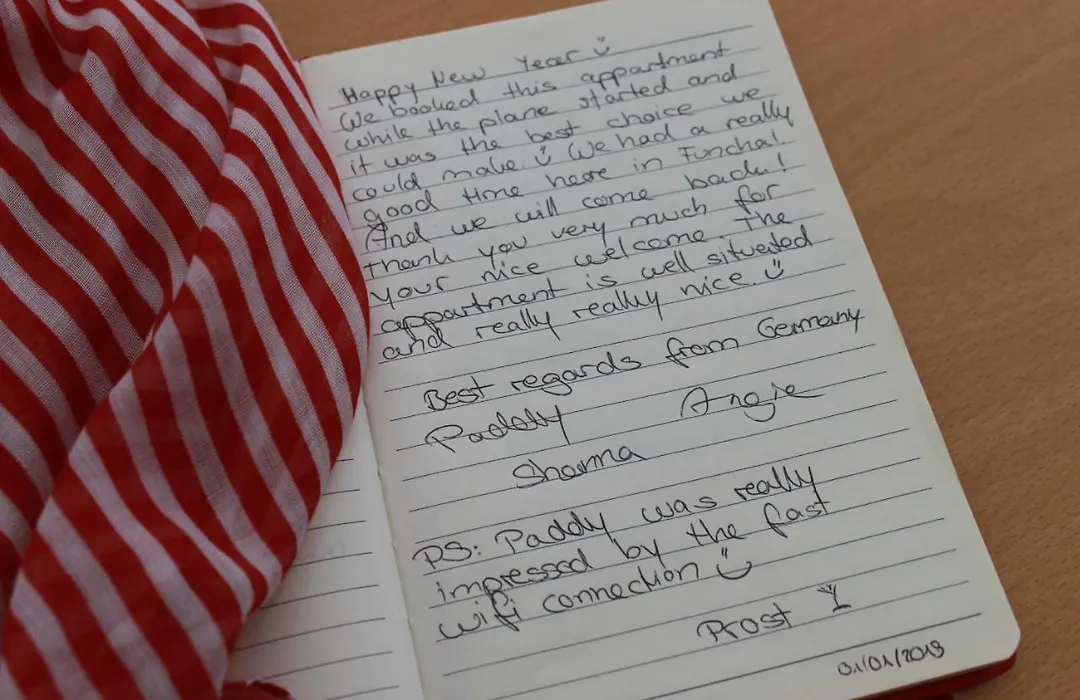 Happy New Year
We booked this appartment
while the plane started and
it was the best choice we
could make. We had a really
good time here in Funchal.
And we will come back!
thank you very much for
your nice welcome. The
appartment is well situated
and really really nice.
Best regards from Germany
Paddy Angie
Sharma
PS: Paddy was really
impressed by the fast
wifi connection
Prost
01/01/2019